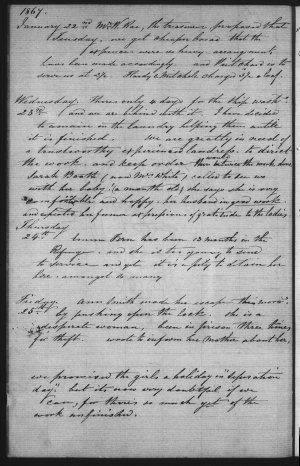 1867.
January 22nd Mr W. Rae, the treasurer proposed that
Tuesday, we get cheaper bread that the
expences were so heavy arrangement
has been made accordingly and Pritchard is to
serve us at 2/2. Hardy & Mitchell charged 2/4 a loaf.
Wednesday. There's only 4 days for the ship wash
23rd and we are behind with it. I have decided
to assist in the laundry helping them until
it is finished. We are greatly in need of
a trustworthy experienced laundress to direct
the work and keep order then the work
Sarah Booth (now Mrs White) called to see us
with her baby (a month old) she says she is very
comfortable and happy, her husband in good work
and repeated her former expressions of gratitude to the ladies.
Thursday
24th Emma Horn has been 13 months in the
Refuge and she is too young to send
to Service and yet it is a pity to detain her
here, amongst so many
Friday. Ann Smith made her escape this morn
25th by pushing open the lock. She is a
desperate woman, been in prison three times
for theft. wrote to inform her Mother about her.
we promised the girls a holiday on "Separation
day", but it's now very doubtful if we
can, for there's so much yet of the
work unfinished.